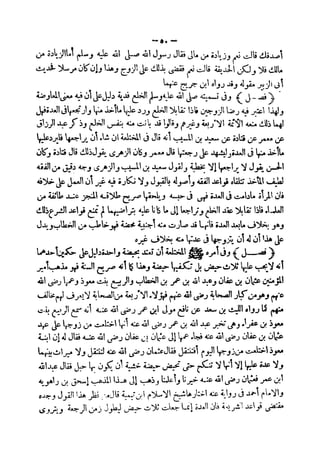 – ٥٠ –
أصدقك قالت نعم وزيادة من مالى فقال رسول الله صلى الله عليه وسلم أما الزيادة من
مالك فلا ولكن الحديقة قالت نعم فقضى بذلك على الزوج وهذا وإن كان مرسلا فحديث
أبى الزبير مقوله وقد رواه ابن جريج عنهما
﴿ فصـــل ﴾ وفى تسميته صلى الله عليه وسلم الخلع فدية دليل على أن فيه معنى المعاوضة
ولهذا اعتبر فيه رضا الزوجين فاذا تقايلا الخلع ورد عليها ما أخذ منها وارتجعها فى العدة فهل
لهما ذلك منعه الائمة الاربعة وغيرهم وقالوا قد بانت منه بنفس الخلع وذكر عبد الرزاق
عن معمر عن قتادة عن سعيد بن المسيب أنه قال فى المختلعة ان شاء أن يراجعها فليرد عليها
ما أخذ منها فى العدة وليشهد على رجعتها قال معمر وكان الزهرى يقول ذلك قال قتادة وكان
الحسن يقول لا يراجعها إلا بخطبة ولقول سعيد بن المسيب والزهرى وجه دقيق من الفقه
لطيف المأخذ تتلقاه قواعد الفقه وأصوله بالقبول ولا نكارة فيه غير أن العمل على خلافه
فان المرأة مادامت فى العدة فهى فى حبسه ويلحقها صريح طلاقه المنجز عند طائفة من
العلماء فاذا تقايلا عقد الخلع وتراجعا إلى ما كانا عليه بتراضيهما لم تمنع قواعد الشرع ذلك
وهو بخلاف ما بعد العدة فانها قد صارت منه أجنبية محضة فهو خاطب من الخطاب ويدل
على هذا أن له أن يتزوجها فى عدتها منه بخلاف غيره
﴿ فصـــل ﴾ وفى أمره ﷺ المختلعة أن تعتد بحيضة واحدة دليل على حكمين أحدهما
أنه لا يجب عليها ثلاث حيض بل تكفيها حيضة وهذا كما أنه صريح السنة فهو مذهب أمير
المؤمنين عثمان بن عفان وعبد الله بن عمر بن الخطاب والربيع بنت معوذ وعمها رضى الله
عنهم وهو من كبار الصحابة رضى الله عنهم فهؤلاء الاربعة من الصحابة لا يعرف لهم مخالف
منهم كما رواه الليث بن سعد عن نافع مولى ابن عمر رضى الله عنه أنه سمع الربيع بنت
معوذ بن عفراء وهى تخبر عبد الله بن عمر رضى الله عنه أنها اختلعت من زوجها على عهد
عثمان بن عفان رضى الله عنه فجاء عمها إلى عثمان بن عفان رضى الله عنه فقال له إن ابنة
معوذ اختلعت من زوجها اليوم أفتنتقل فقال عثمان رضى الله عنه لتنتقل ولا ميراث بينهما
ولا عدة عليها إلا أنها لا تنكح حتى تحيض حيضة خشية أن يكون بها حبل فقال عبد الله
ابن عمر فعثمان رضى الله عنه خيرنا وأعلمنا وذهب إلى هذا المذهب إسحق بن راهويه
والامام أحمد فى رواية عنه اختارها شيخ الاسلام ابن تيمية قال من نظر هذا القول وجده
مقتضى قواعد الشريعة فان العدة إنما جعلت ثلاث حيض ليطول زمن الرجعة ويتروى